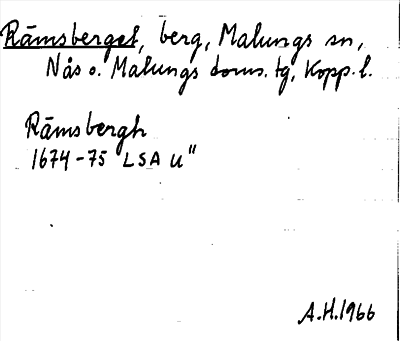 Rämsberget, berg, Malungs sn,
Nås o. Malungs doms. tg, Kopp. l.
Rämsbergh
1674-75 LSA U"
A.H. 1966